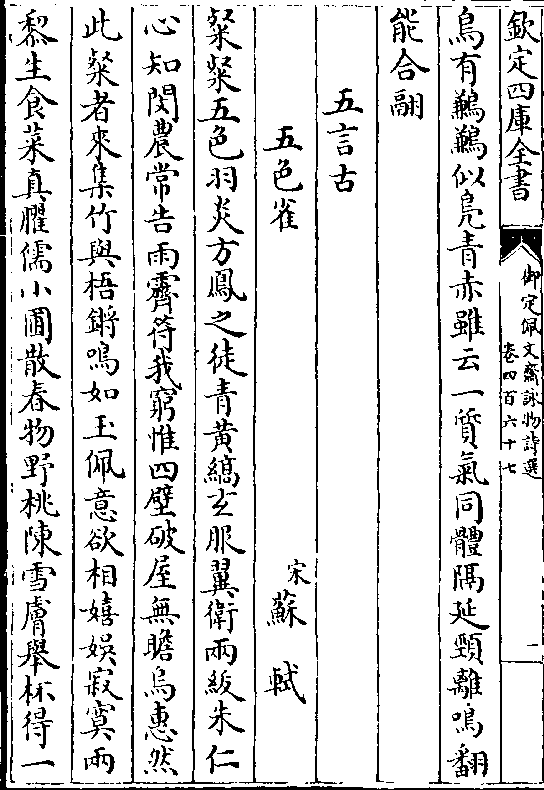 欽定四庫全書
御定佩文齋詠物詩選
卷四百六十七
一
烏有鶼鶼似鳧青赤雖云一質氣同體隔延頸離鳴翻
能合翮
五言古
五色雀
宋蘇軾
粲粲五色羽炎方鳳之徒青黃縞玄服翼衛兩紱朱仁
心知閔農常告雨霽符我窮惟四壁破屋無瞻烏惠然
此粲者來集竹與梧鏘鳴如玉佩意欲相嬉娛寂寞兩
黎生食菜真臞儒小圃散春物野桃陳雪膚舉杯得一